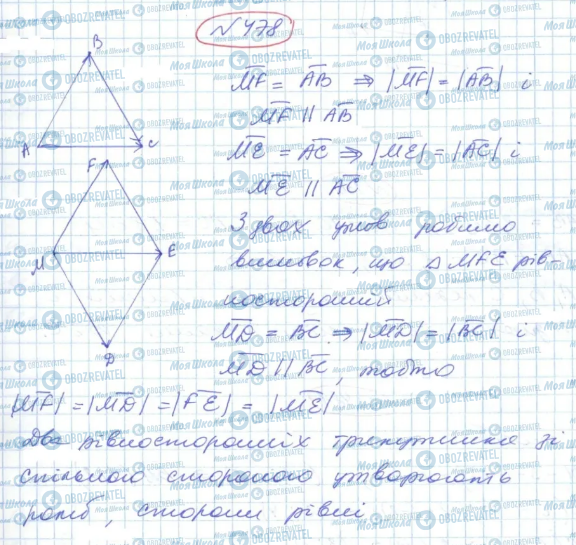 № 478
B
A
C
F
M
E
D
M͞F = A͞B ⇒ |M͞F| = |A͞B| і
M͞F || A͞B
M͞E = A͞C ⇒ |M͞E| = |A͞C| і
M͞E || A͞C
З двох умов робимо
висновок, що △ MFE рів-
носторонній
M͞D = B͞C ⇒ |M͞D| = |B͞C| і
M͞D || B͞C, тобто
|M͞F| = |M͞D| = |F͞E| = |M͞E|
Два рівносторонніх трикутника зі
спільною стороною утворюють
ромб, сторони рівні
Моя Школа
OBOZREVATEL